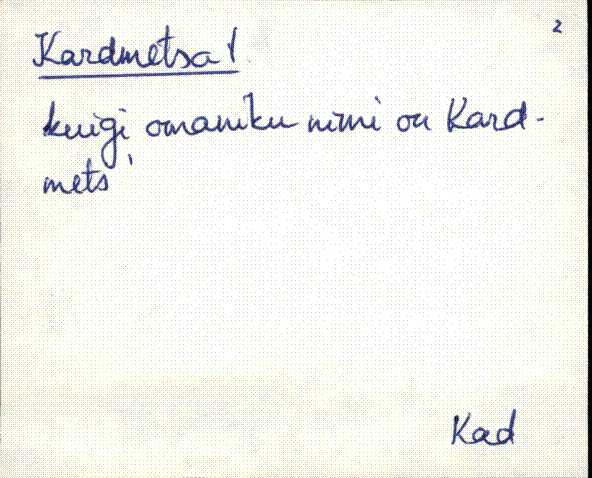 2
Kardmetsa!
kuigi omaniku nimi on Kard-
mets
Kad